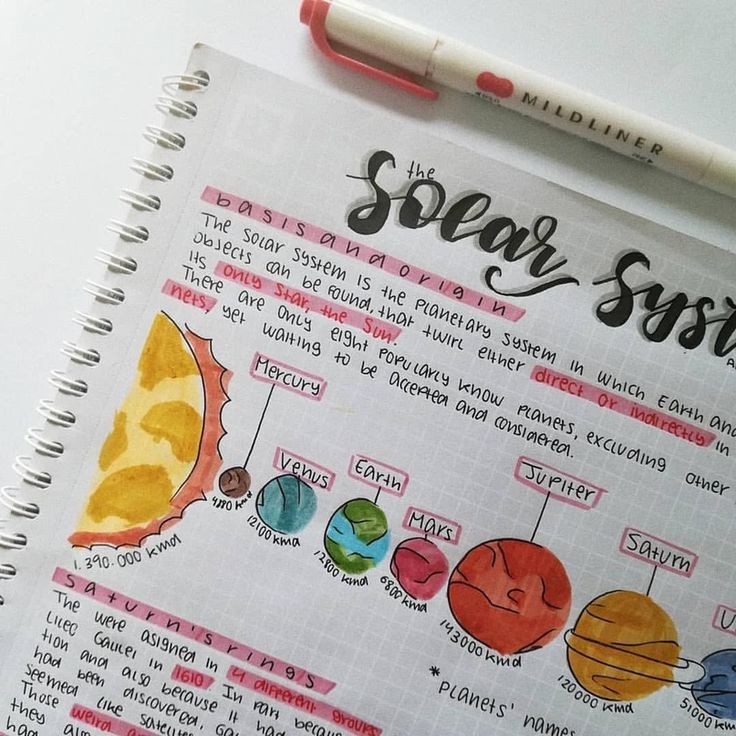 MILDLINER
the
Solar Syst
basis and origin
The solar system is the planetary system in which Earth and
objects can be found, that twirl either direct or indirectly in
its only star, the sun.
There are only eight popularly know planets, excluding other
nets, yet waiting to be accepted and considered.
Mercury
Venus
Earth
Mars
Jupiter
Saturn
U
1.390.000 kmd
4880 kmd
12100 kmd
12800 kmd
6800 kmd
143000 kmd
120000 kmd
51000 km
saturn's rings
The were asigned in 4 different groups
lileo Galilei in 1610. In part because
tion and also because it had
had been discovered, Ga
Seemed like satellite
Those weird a
they als
had
*Planets' names